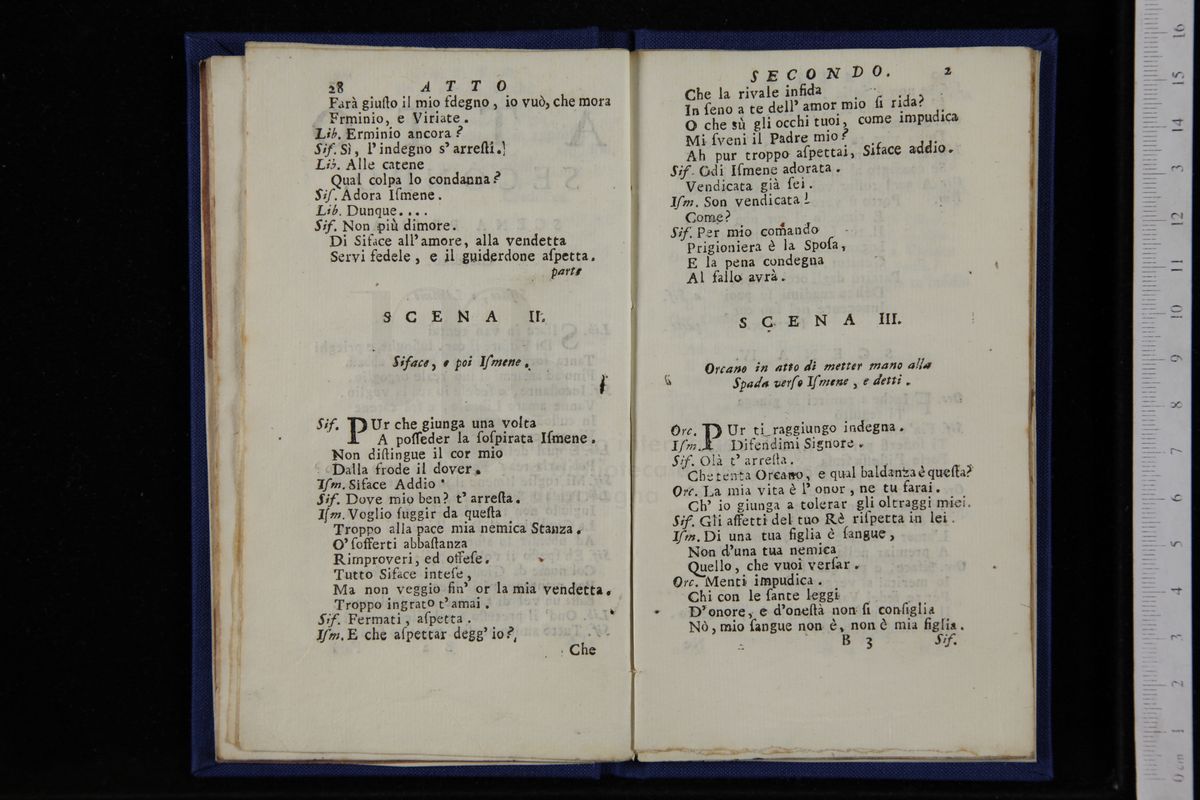 28 ATTO
Farà giuſto il mio ſdegno, io vuò, che mora
Frminio, e Viriate.
Lib. Erminio ancora?
Sif. Sì, l'indegno s'arreſti.
Lib. Alle catene
Qual colpa lo condanna?
Sif. Adora Iſmene.
Lib. Dunque....
Sif. Non più dimore.
Di Siface all'amore, alla vendetta
Servi fedele, e il guiderdone aſpetta.
parte
SCENA II.
Siface, e poi Iſmene.
Sif. PUr che giunga una volta
A poſſeder la ſoſpirata Iſmene.
Non diſtingue il cor mio
Dalla frode il dover.
Iſm. Siface Addio
Sif. Dove mio ben? t'arreſta.
Iſm. Voglio fuggir da queſta
Troppo alla pace mia nemica Stanza.
O' ſofferti abbaſtanza
Rimproveri, ed offeſe.
Tutto Siface inteſe,
Ma non veggio fin' or la mia vendetta.
Troppo ingrato t'amai.
Sif. Fermati, aſpetta.
Iſm. E che aſpettar degg' io?
Che
SECONDO. 2
Che la rivale infida
In ſeno a te dell' amor mio ſi rida?
O che sù gli occhi tuoi, come impudica
Mi ſveni il Padre mio?
Ah pur troppo aſpettai, Siface addio.
Sif. Odi Iſmene adorata.
Vendicata già ſei.
Iſm. Son vendicata!
Come?
Sif. Per mio comando
Prigioniera è la Spoſa,
E la pena condegna
Al fallo avrà.
SCENA III.
Orcano in atto di metter mano alla
Spada verſo Iſmene, e detti.
Orc. PUr ti raggiungo indegna.
Iſm. Difendimi Signore.
Sif. Olà t'arreſta.
Che tenta Orcano, e qual baldanza è queſta?
Orc. La mia vita è l'onor, ne tu farai.
Ch' io giunga a tolerar gli oltraggi miei.
Sif. Gli affetti del tuo Rè riſpetta in lei.
Iſm. Di una tua figlia è ſangue,
Non d'una tua nemica
Quello, che vuoi verſar.
Orc. Menti impudica.
Chi con le ſante leggi
D'onore, e d'oneſtà non ſi conſiglia
Nò, mio ſangue non è, non è mia figlia.
B 3 Sif.